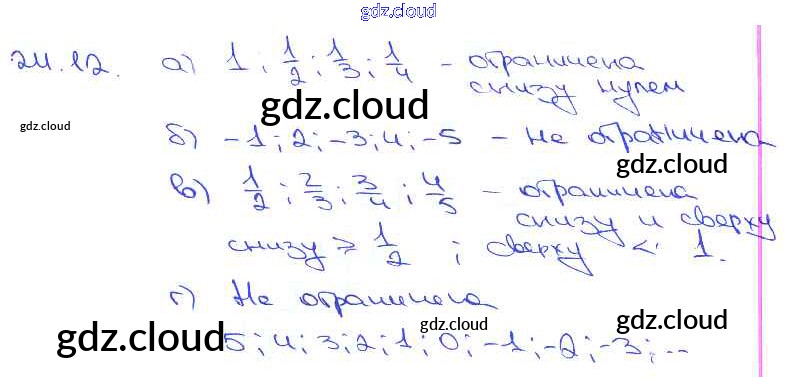 gdz.cloud
24.12. а) 1; 1/2; 1/3; 1/4 - ограничена
снизу нулем
gdz.cloud
gdz.cloud
б) -1; 2; -3; 4; -5 - не ограничена
gdz.cloud
в) 1/2; 2/3; 3/4; 4/5 - ограничена
снизу и сверху
снизу ≥ 1/2 ; сверху < 1.
г) Не ограничена
gdz.cloud gdz.cloud gdz.cloud
5; 4; 3; 2; 1; 0; -1; -2; -3; ...